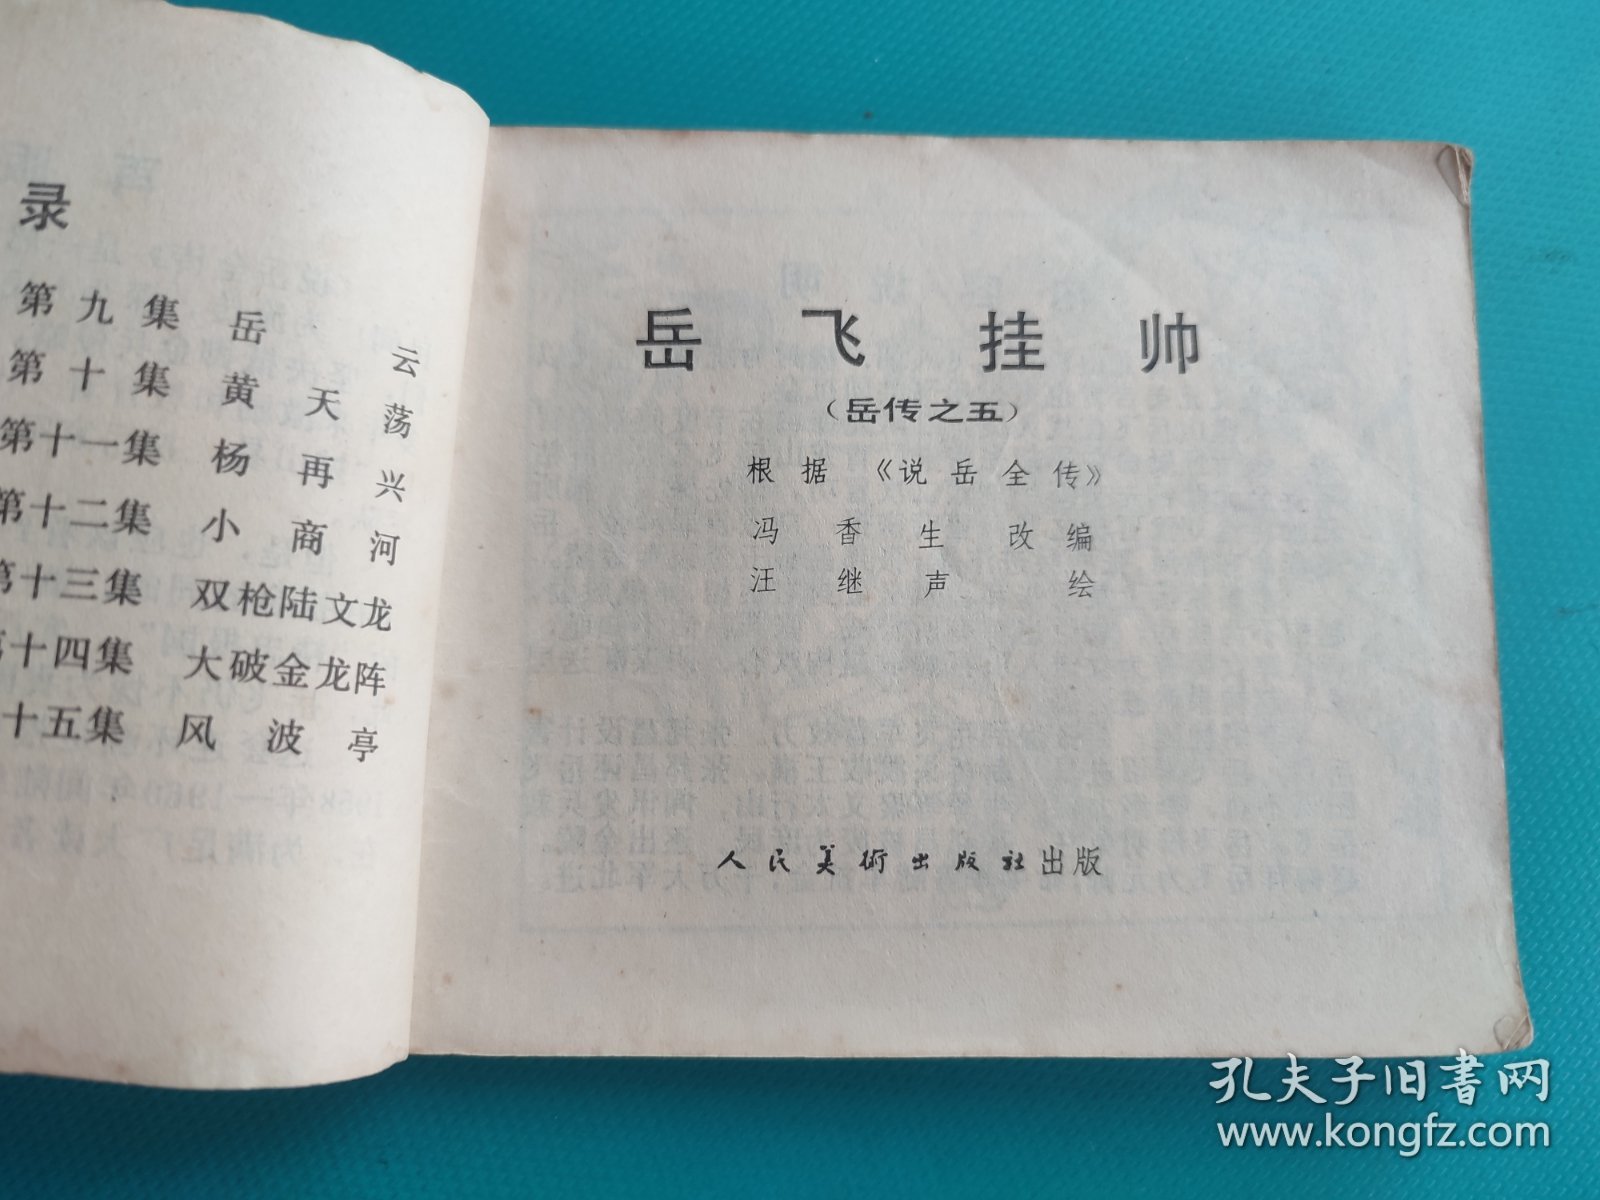 录
第九集 岳云
第十集 黄天荡
第十一集 杨再兴
第十二集 小商河
第十三集 双枪陆文龙
第十四集 大破金龙阵
十五集 风波亭
岳飞挂帅
（岳传之五）
根据《说岳全传》
冯香生 改编
汪继声 绘
人民美術出版社出版
孔夫子旧书网
www.kongfz.com